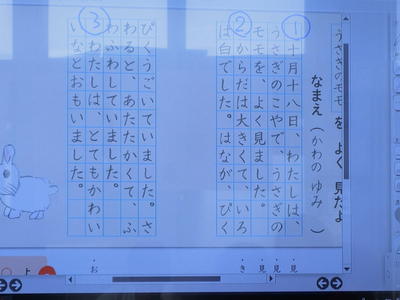 うさぎのモモ を よく 見たよ
なまえ ( かわの ゆみ )
① 十月十八日、わたしは、
うさぎのこやで、うさぎの
モモを、よく見ました。
② からだは大きくて、いろ
は白でした。はなが、ぴく
ぴくうごいていました。さ
わると、あたたかくて、ふ
わふわしていました。
③ わたしは、とてもかわい
いなとおもいました。
・見
・見
・き
・お
上